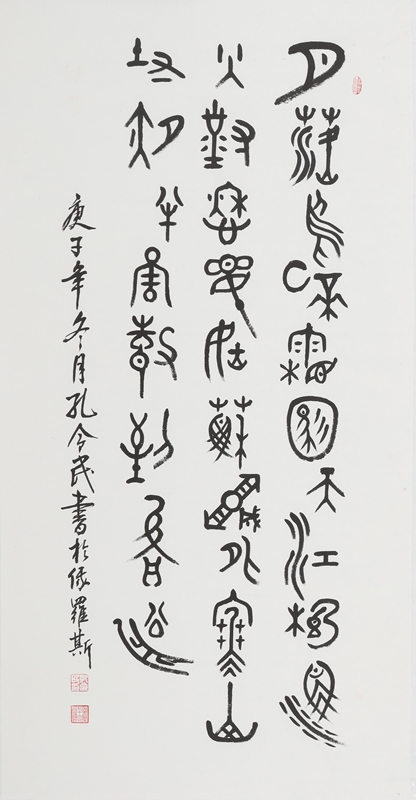 月落烏啼霜滿天江楓漁
火對愁眠姑蘇城外寒山
寺夜半鐘聲到客船
庚子年冬月孔令民書於俄羅斯